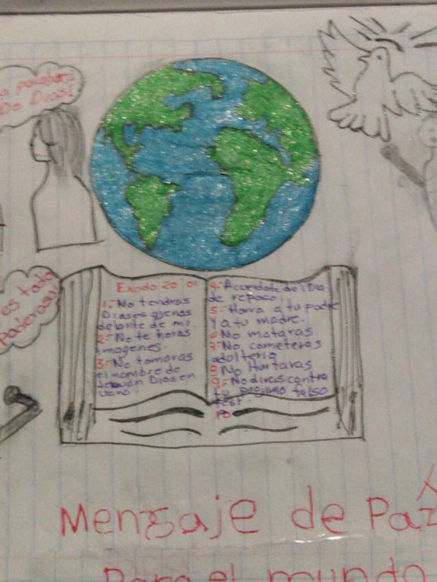 a palabra
De Dios!
es todo
poderoso!
Exodo 20 01
1-No tendras
Dioses ajenos
delante de mi
2-No te horas
imagenes.
3-No tomaras
el nombre de
Dios en
vano.
4-Acuerdate del Dia
de reposo
5-Honra a tu padre
y a tu madre.
6 No mataras
7-No cometeras
adolterio
8 No Hurtaras
9-No diras contra
tu proximo falso
Mensaje de Paz
Para el mundo